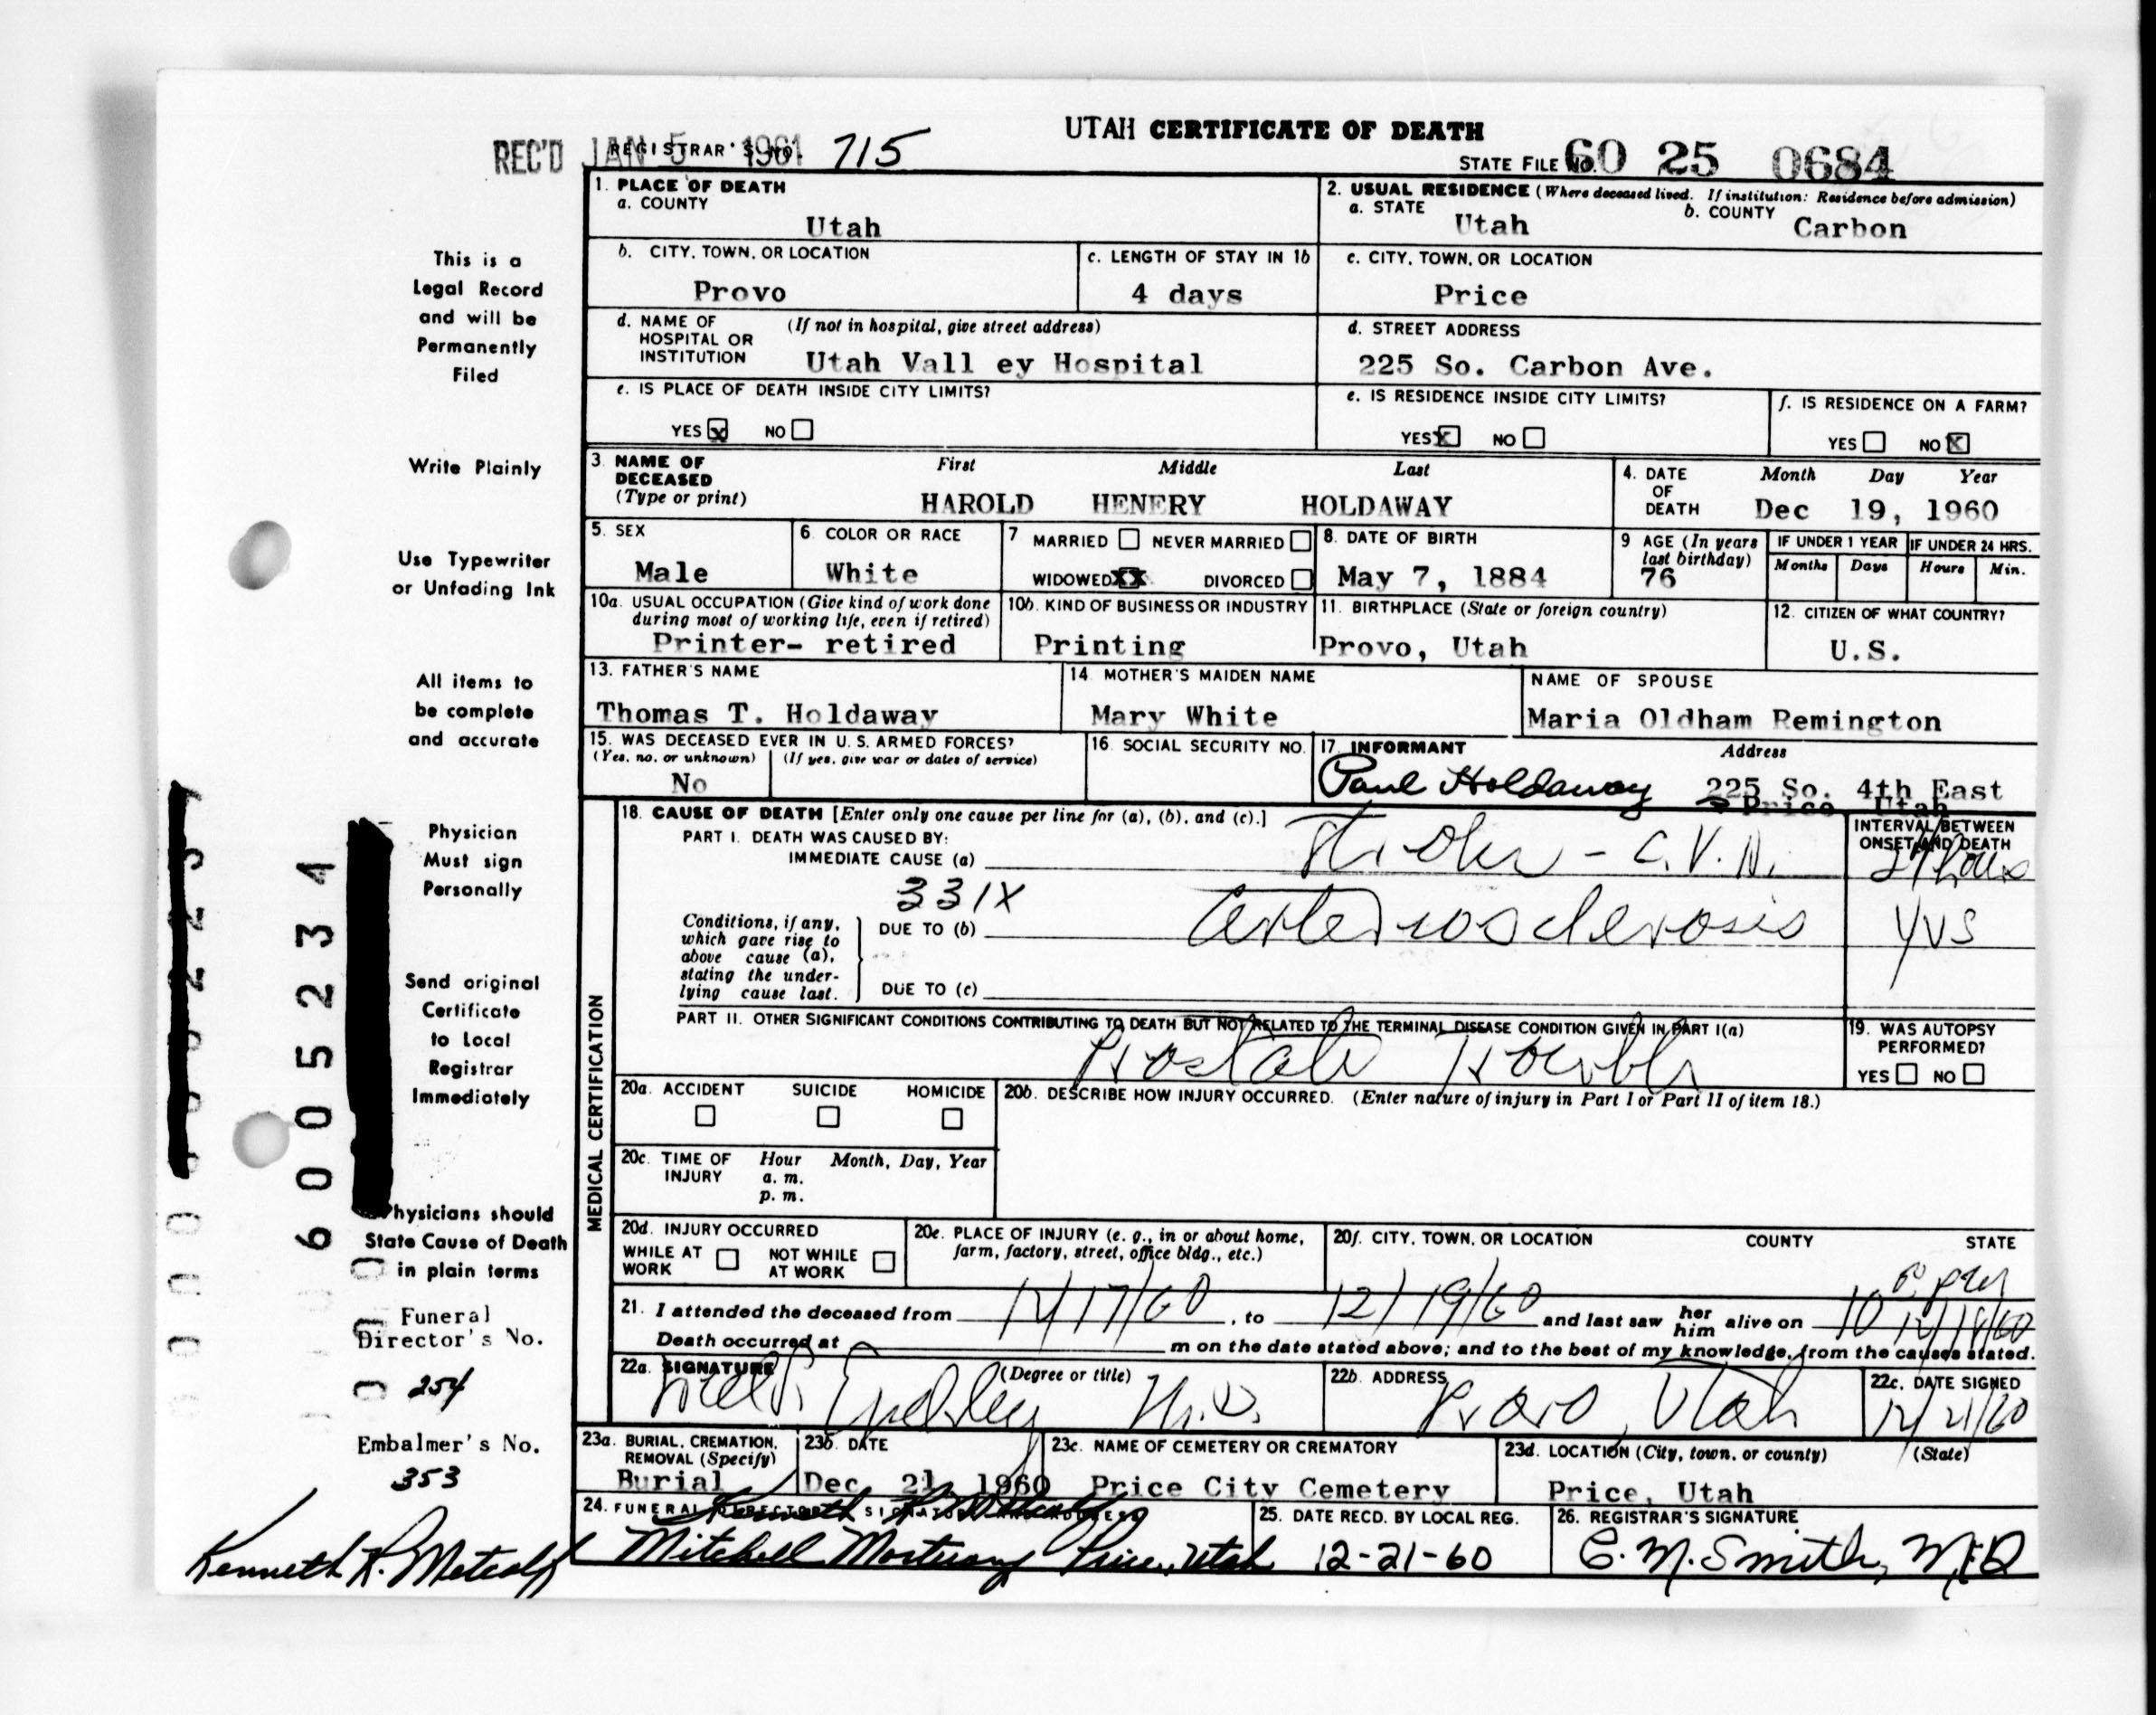 UTAH CERTIFICATE OF DEATH
REC'D JAN 5 1961 REGISTRAR'S NO. 715
STATE FILE NO. 60 25 0684
1. PLACE OF DEATH
a. COUNTY
Utah
2. USUAL RESIDENCE (Where deceased lived. If institution: Residence before admission)
a. STATE Utah b. COUNTY Carbon
b. CITY, TOWN, OR LOCATION
Provo
c. LENGTH OF STAY IN 1b
4 days
c. CITY, TOWN, OR LOCATION
Price
d. NAME OF HOSPITAL OR INSTITUTION (If not in hospital, give street address)
Utah Vall ey Hospital
d. STREET ADDRESS
225 So. Carbon Ave.
e. IS PLACE OF DEATH INSIDE CITY LIMITS?
YES X NO
e. IS RESIDENCE INSIDE CITY LIMITS?
YES X NO
f. IS RESIDENCE ON A FARM?
YES NO X
3. NAME OF DECEASED (Type or print)
First Middle Last
HAROLD HENERY HOLDAWAY
4. DATE OF DEATH Month Day Year
Dec 19, 1960
5. SEX
Male
6. COLOR OR RACE
White
7 MARRIED NEVER MARRIED
WIDOWED XX DIVORCED
8. DATE OF BIRTH
May 7, 1884
9 AGE (In years last birthday)
76
IF UNDER 1 YEAR
Months Days
IF UNDER 24 HRS.
Hours Min.
10a. USUAL OCCUPATION (Give kind of work done during most of working life, even if retired)
Printer- retired
10b. KIND OF BUSINESS OR INDUSTRY
Printing
11. BIRTHPLACE (State or foreign country)
Provo, Utah
12. CITIZEN OF WHAT COUNTRY?
U.S.
13. FATHER'S NAME
Thomas T. Holdaway
14 MOTHER'S MAIDEN NAME
Mary White
NAME OF SPOUSE
Maria Oldham Remington
15. WAS DECEASED EVER IN U. S. ARMED FORCES?
(Yes, no, or unknown) (If yes, give war or dates of service)
No
16. SOCIAL SECURITY NO.
17. INFORMANT Address
Paul Holdaway 225 So. 4th East
Price Utah
MEDICAL CERTIFICATION
18. CAUSE OF DEATH [Enter only one cause per line for (a), (b), and (c).]
PART I. DEATH WAS CAUSED BY:
IMMEDIATE CAUSE (a) Stroke - C.V.A.
INTERVAL BETWEEN ONSET AND DEATH
331X
Conditions, if any, which gave rise to above cause (a), stating the underlying cause last.
DUE TO (b) Arteriosclerosis yrs
DUE TO (c)
PART II. OTHER SIGNIFICANT CONDITIONS CONTRIBUTING TO DEATH BUT NOT RELATED TO THE TERMINAL DISEASE CONDITION GIVEN IN PART I(a)
Prostate trouble
19. WAS AUTOPSY PERFORMED?
YES NO
20a. ACCIDENT SUICIDE HOMICIDE
20b. DESCRIBE HOW INJURY OCCURRED. (Enter nature of injury in Part I or Part II of item 18.)
20c. TIME OF INJURY Hour Month, Day, Year
a. m.
p. m.
20d. INJURY OCCURRED
WHILE AT WORK NOT WHILE AT WORK
20e. PLACE OF INJURY (e. g., in or about home, farm, factory, street, office bldg., etc.)
20f. CITY, TOWN, OR LOCATION COUNTY STATE
21. I attended the deceased from 12/17/60, to 12/19/60 and last saw her him alive on 12/18/60
Death occurred at m on the date stated above; and to the best of my knowledge, from the causes stated.
22a. SIGNATURE (Degree or title)
M.D.
22b. ADDRESS
Provo, Utah
22c. DATE SIGNED
12/21/60
23a. BURIAL, CREMATION, REMOVAL (Specify)
Burial
23b. DATE
Dec 21 1960
23c. NAME OF CEMETERY OR CREMATORY
Price City Cemetery
23d. LOCATION (City, town, or county) (State)
Price, Utah
24. FUNERAL DIRECTOR'S SIGNATURE AND ADDRESS
Kenneth R. Metcalf
Mitchell Mortuary Price, Utah
25. DATE RECD. BY LOCAL REG.
12-21-60
26. REGISTRAR'S SIGNATURE
C. M. Smith, M.D
This is a
Legal Record
and will be
Permanently
Filed
Write Plainly
Use Typewriter
or Unfading Ink
All items to
be complete
and accurate
Physician
Must sign
Personally
Send original
Certificate
to Local
Registrar
Immediately
Physicians should
State Cause of Death
in plain terms
Funeral
Director's No.
254
Embalmer's No.
353
Kenneth R. Metcalf
6005234